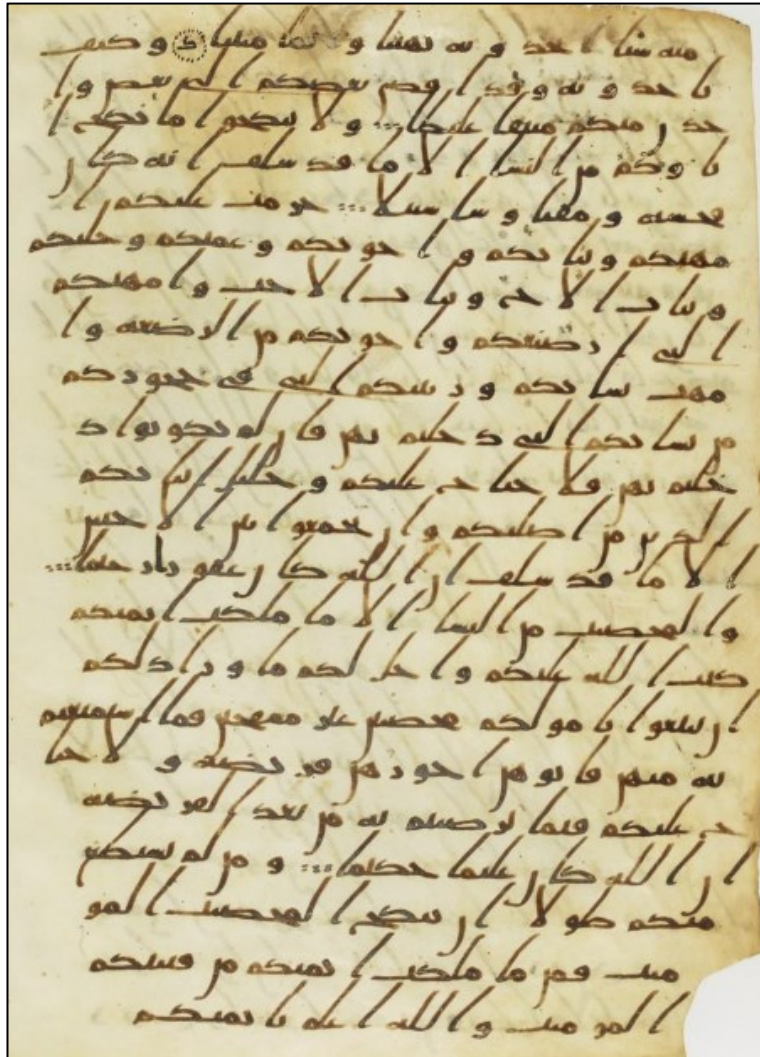 منه شيا اتاخذونه بهتنا واثما مبينا وكيف
تاخذونه وقد افضى بعضكم الى بعض وا
خذن منكم ميثقا غليظا ولا تنكحوا ما نكح ا
باوكم من النسا الا ما قد سلف انه كان
فحشة ومقتا وسا سبيلا حرمت عليكم ا
مهتكم وبناتكم واخوتكم وعمتكم وخلتكم
وبنات الاخ وبنات الاخت وامهتكم
التي ارضعنكم واخوتكم من الرضعة وا
مهت نسايكم وربيبكم التي في حجوركم
من نسايكم التي دخلتم بهن فان لم تكونوا د
خلتم بهن فلا جناح عليكم وحليل ابنايكم
الذين من اصلبكم وان تجمعوا بين الاختين
الا ما قد سلف ان الله كان غفورا رحيما
والمحصنت من النسا الا ما ملكت ايمنكم
كتب الله عليكم واحل لكم ما ورا ذلكم
ان تبتغوا بامولكم محصنين غير مسفحين فما استمتعتم
به منهن فاتوهن اجورهن فريضة ولا جنا
ح عليكم فيما ترضيتم به من بعد الفريضة
ان الله كان عليما حكيما ومن لم يستطع
منكم طولا ان ينكح المحصنت المو
منت فمن ما ملكت ايمنكم من فتيتكم
المومنت والله اعلم بايمنكم